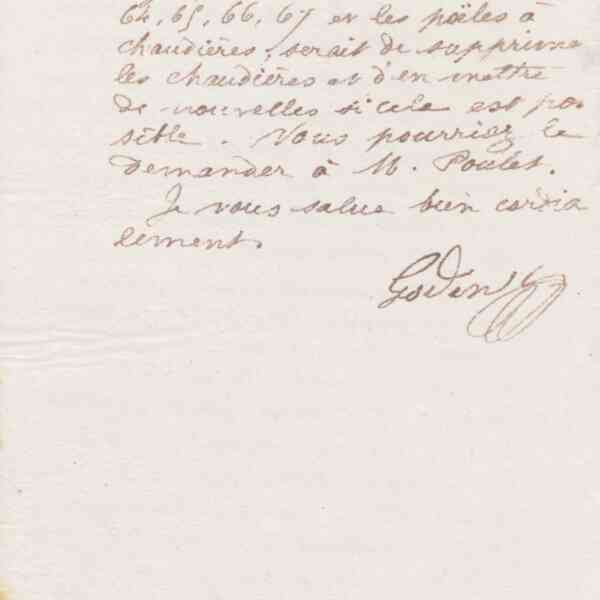 64, 65, 66, 67 et les poëles à
chaudières, serait de supprimer
les chaudières et d'en mettre
de nouvelles si cela est pos
sible. Vous pourriez le
demander à M. Poulet.
Je vous salue bien cordia
lement.
Godin